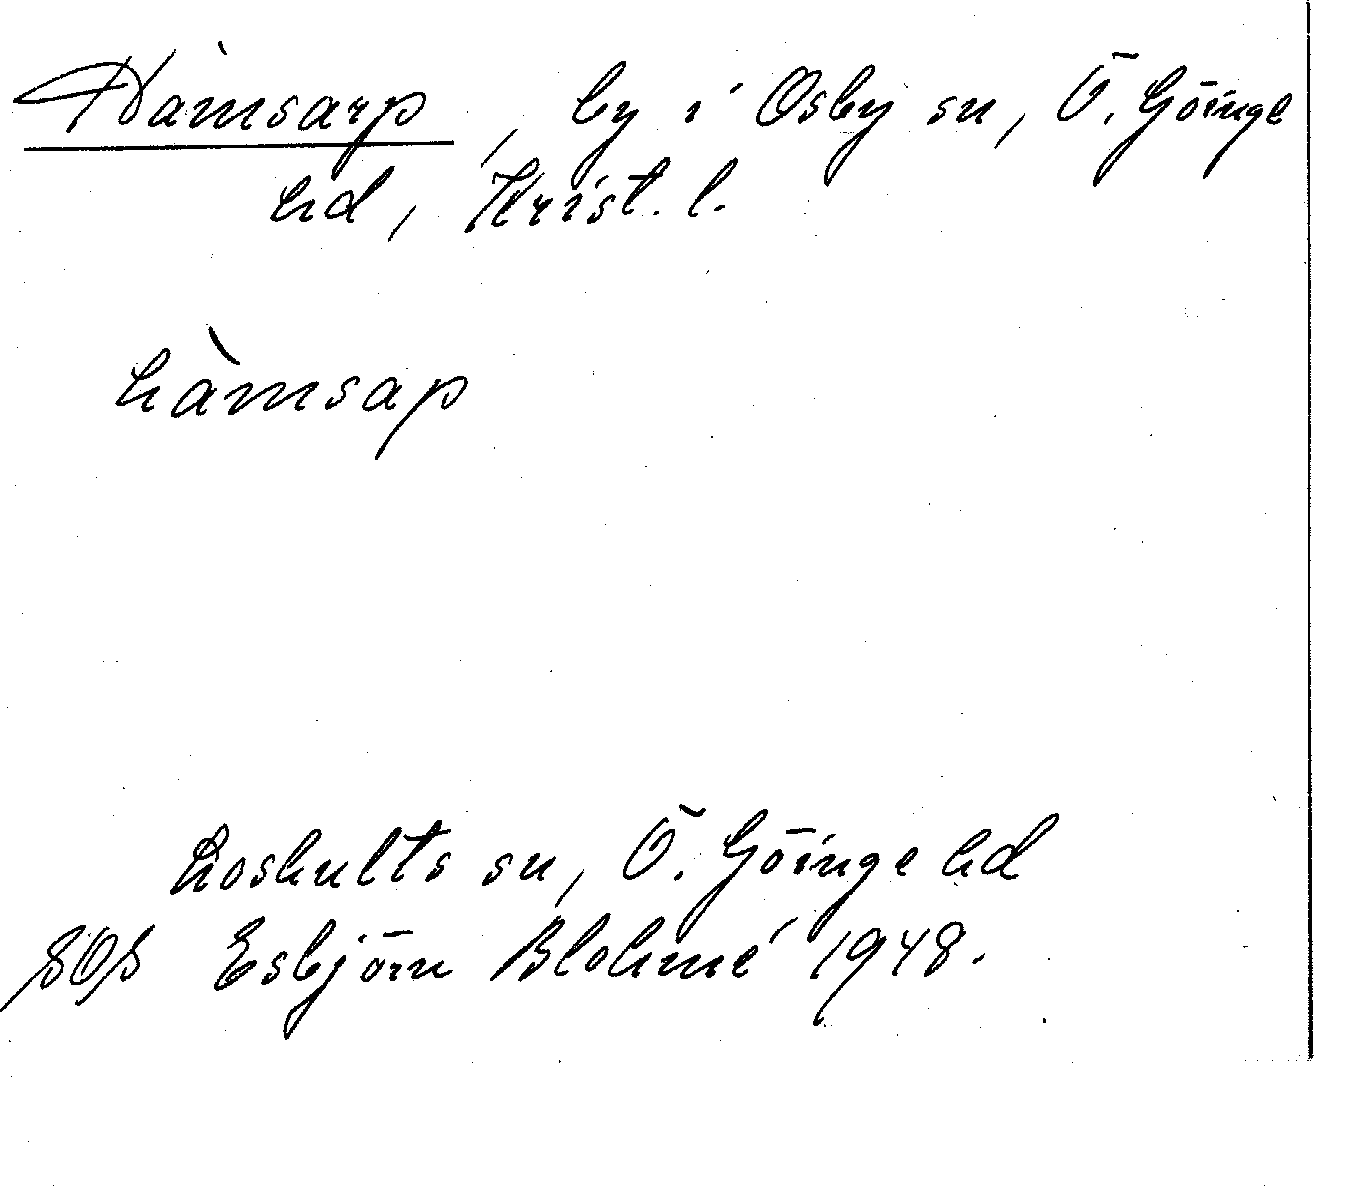 Hàmsarp, by i Osby sn, Ö. Göinge
hd, Krist. l.
hàmsap
Loshults sn, Ö. Göinge hd
SOS Esbjörn Blohmé 1948.